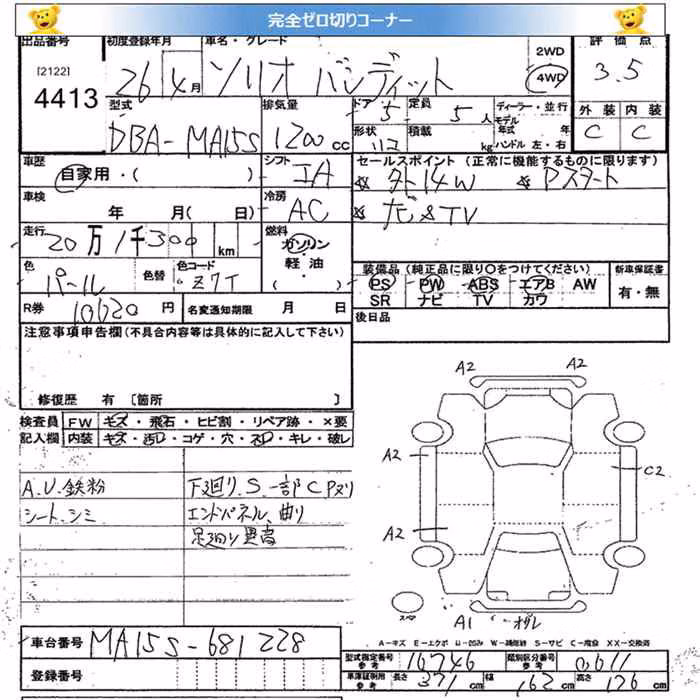 完全ゼロ切りコーナー
出品番号 初度登録年月 車名・グレード 評価点
[2122]
4413
26年4月 ソリオ バンディット 2WD 4WD 3.5
型式 排気量 ドア 定員 ディーラー・並行 外装 内装
DBA-MA15S 1200cc 5 5人 モデル年式 年 C C
形状 積載 kg ハンドル 左・右
車歴 シフト セールスポイント(正常に機能するものに限ります)
自家用・( ) IA ☆外14W ☆Pスタート
車検 冷房
年 月( 日) AC ☆ナビ&TV
走行 燃料
20万1千300km ガソリン・軽油・( )
色 色替 色コード 装備品(純正品に限り○をつけてください) 新車保証書
パール Z7T PS PW ABS エアB AW 有・無
SR ナビ TV カワ
R券 10620円 名変通知期限 月 日 後日品
注意事項申告欄(不具合内容等は具体的に記入して下さい)
修復歴 有 〔箇所 〕
検査員 FW キズ・飛石・ヒビ割・リペア跡・×要
記入欄 内装 キズ・汚レ・コゲ・穴・スレ・キレ・破レ
A.U.鉄粉 下廻り.S.一部CPヌリ
シート.シミ エンドパネル.曲り
足廻り異音
A2 A2
A2 C2
A2
スペア A1 オグレ
A-キズ E-エクボ U-凹み W-補修跡 S-サビ C-腐食 XX-交換済
車台番号 MA15S-681228
登録番号
型式指定番号 参考 16746 類別区分番号 参考 0011
車庫証明用 参考 長さ 371cm 幅 162cm 高さ 176cm